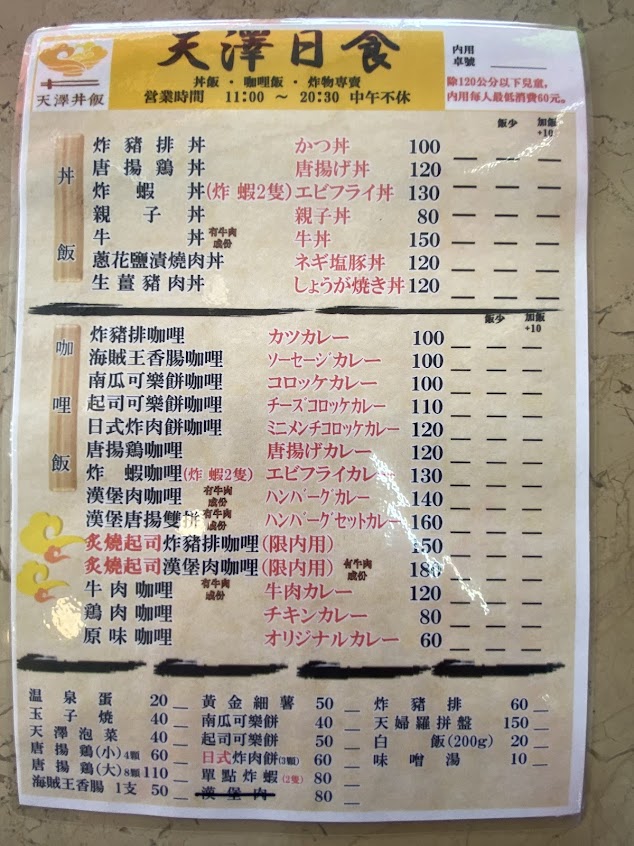 天澤日食
丼飯・咖哩飯・炸物專賣
營業時間 11:00 ～ 20:30 中午不休
天澤丼飯
內用
卓號
除120公分以下兒童,
內用每人最低消費60元。
飯少 加飯+10
丼飯
炸豬排丼 かつ丼 100
唐揚鶏丼 唐揚げ丼 120
炸蝦丼(炸蝦2隻) エビフライ丼 130
親子丼 親子丼 80
牛丼 有牛肉成份 牛丼 150
蔥花鹽漬燒肉丼 ネギ塩豚丼 120
生薑豬肉丼 しょうが焼き丼 120
飯少 加飯+10
咖哩飯
炸豬排咖哩 カツカレー 100
海賊王香腸咖哩 ソーセージカレー 100
南瓜可樂餅咖哩 コロッケカレー 100
起司可樂餅咖哩 チーズコロッケカレー 110
日式炸肉餅咖哩 ミニメンチコロッケカレー 120
唐揚鶏咖哩 唐揚げカレー 120
炸蝦咖哩(炸蝦2隻) エビフライカレー 130
漢堡肉咖哩 有牛肉成份 ハンバーグカレー 140
漢堡唐揚雙拼 有牛肉成份 ハンバーグセットカレー 160
炙燒起司炸豬排咖哩(限內用) 150
炙燒起司漢堡肉咖哩(限內用) 有牛肉成份 180
牛肉咖哩 有牛肉成份 牛肉カレー 120
鶏肉咖哩 チキンカレー 80
原味咖哩 オリジナルカレー 60
溫泉蛋 20
玉子燒 40
天澤泡菜 40
唐揚鶏(小)4顆 60
唐揚鶏(大)8顆 110
海賊王香腸 1支 50
黃金細薯 50
南瓜可樂餅 40
起司可樂餅 50
日式炸肉餅(3顆) 60
單點炸蝦(2隻) 80
漢堡肉 80
炸豬排 60
天婦羅拼盤 150
白飯(200g) 20
味噌湯 10